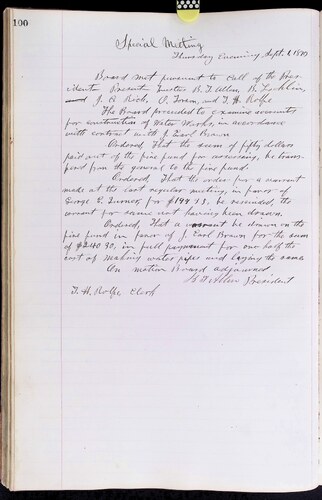 100
Special Meeting
Thursday Evening Sept. 1, 18
Board met pursuant to call of the Pres-
ident. Present Trustees B. F. Allen, B.
and J. E. Rich, O. and T. H. Rolfe
The Board proceeded to examine accounts
for construction of Water Works, in accordance
with contract with J. Earl Brown
Ordered That the sum of fifty dollars
paid out of the fire fund for surveying, be trans-
ferred from the general to the fire fund.
Ordered, That the order for a warrant
made at the last regular meeting, in favor of
George E. Turner, for $199.13, be rescinded, the
warrant for same not having been drawn.
Ordered, That a warrant be drawn on the
fire fund in favor of J. Earl Brown for the sum
of $240.30, in full payment for one half the
cost of making water pipes and laying the same
On motion Board adjourned
B. F. Allen President
T. H. Rolfe Clerk